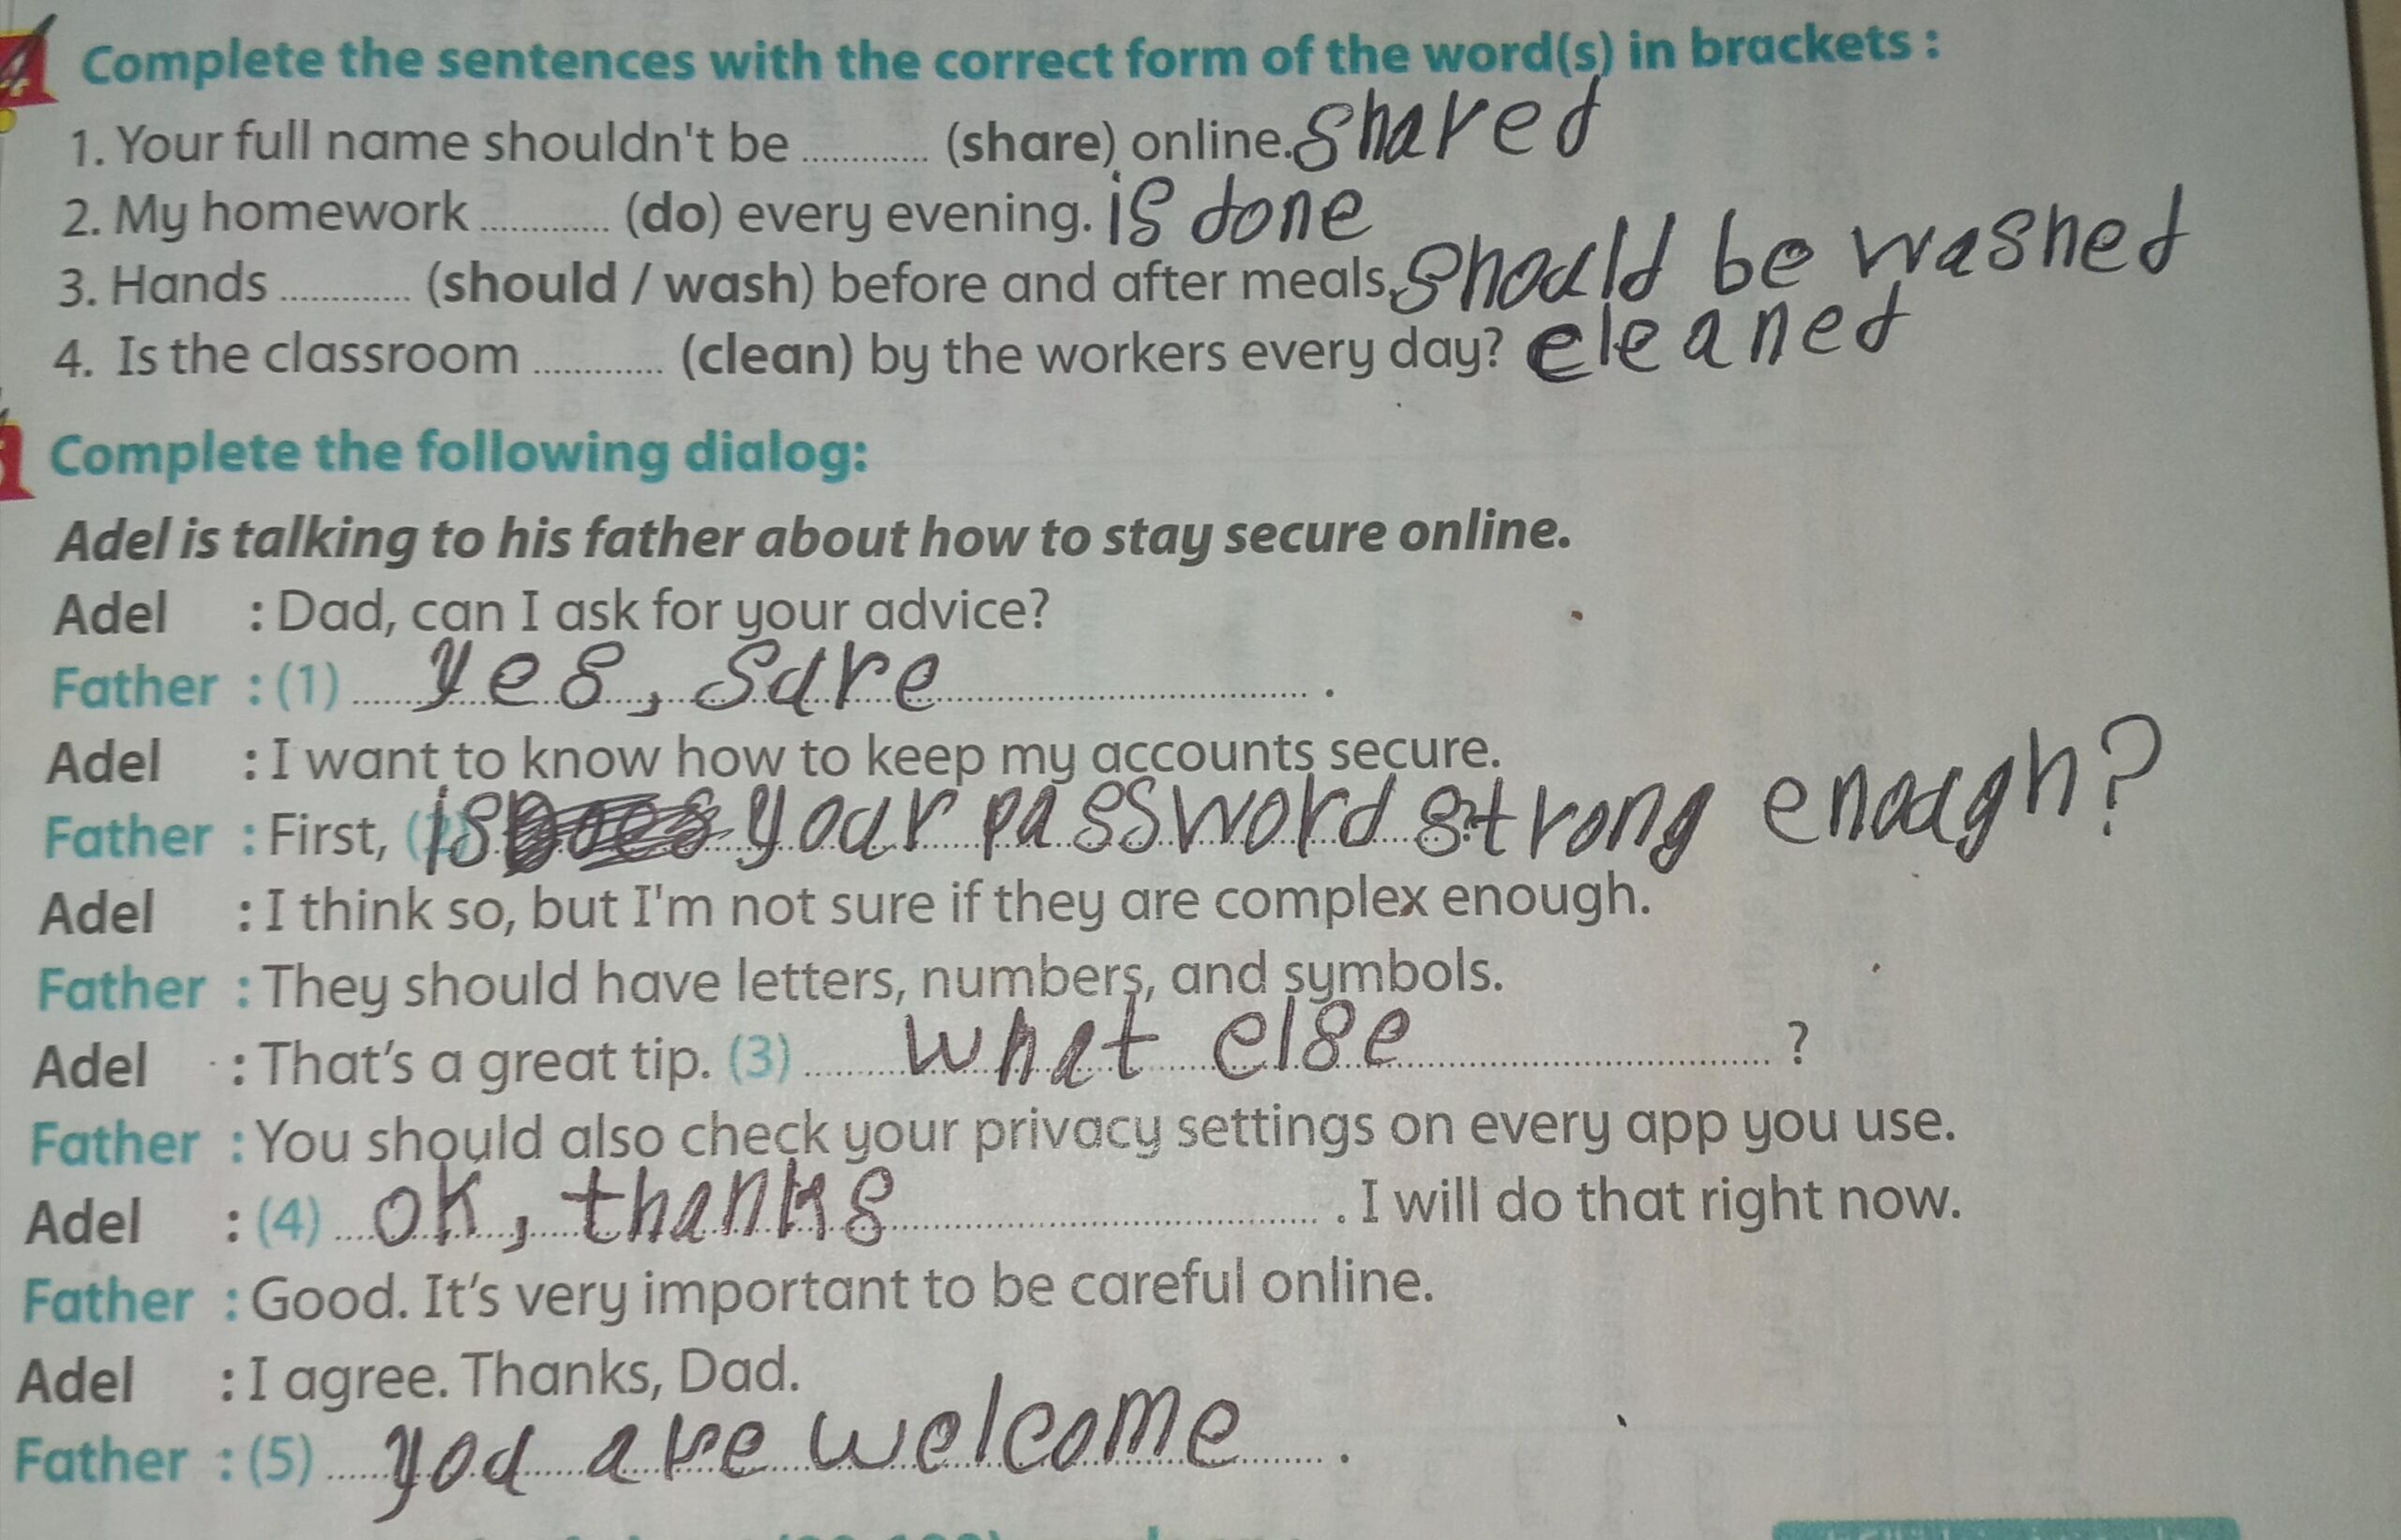 4 Complete the sentences with the correct form of the word(s) in brackets :
1. Your full name shouldn't be ............ (share) online. shared
2. My homework ............ (do) every evening. is done
3. Hands ............ (should / wash) before and after meals. should be washed
4. Is the classroom ............ (clean) by the workers every day? cleaned
Complete the following dialog:
Adel is talking to his father about how to stay secure online.
Adel : Dad, can I ask for your advice?
Father : (1) yes, sure .
Adel : I want to know how to keep my accounts secure.
Father : First, (2) is your password strong enough?
Adel : I think so, but I'm not sure if they are complex enough.
Father : They should have letters, numbers, and symbols.
Adel : That's a great tip. (3) what else ?
Father : You should also check your privacy settings on every app you use.
Adel : (4) ok, thanks . I will do that right now.
Father : Good. It's very important to be careful online.
Adel : I agree. Thanks, Dad.
Father : (5) you are welcome .